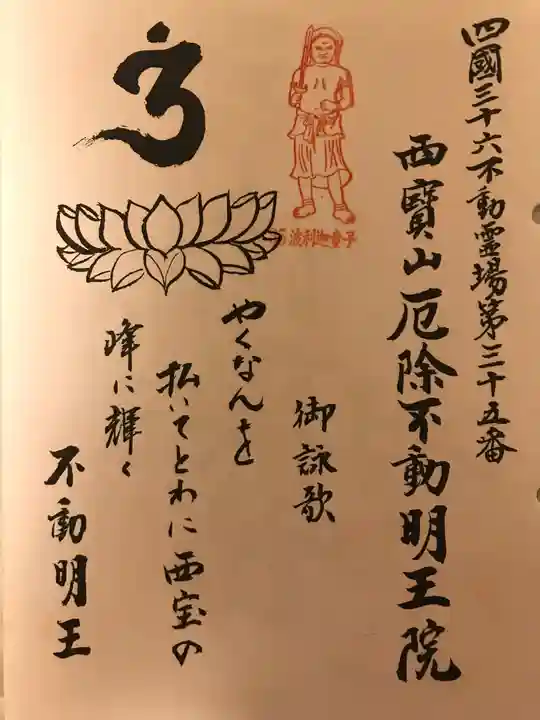 四國三十六不動霊場第三十五番
西寳山厄除不動明王院
波利迦童子
御詠歌
やくなんを
払いてとわに西宝の
峰に輝く
不動明王